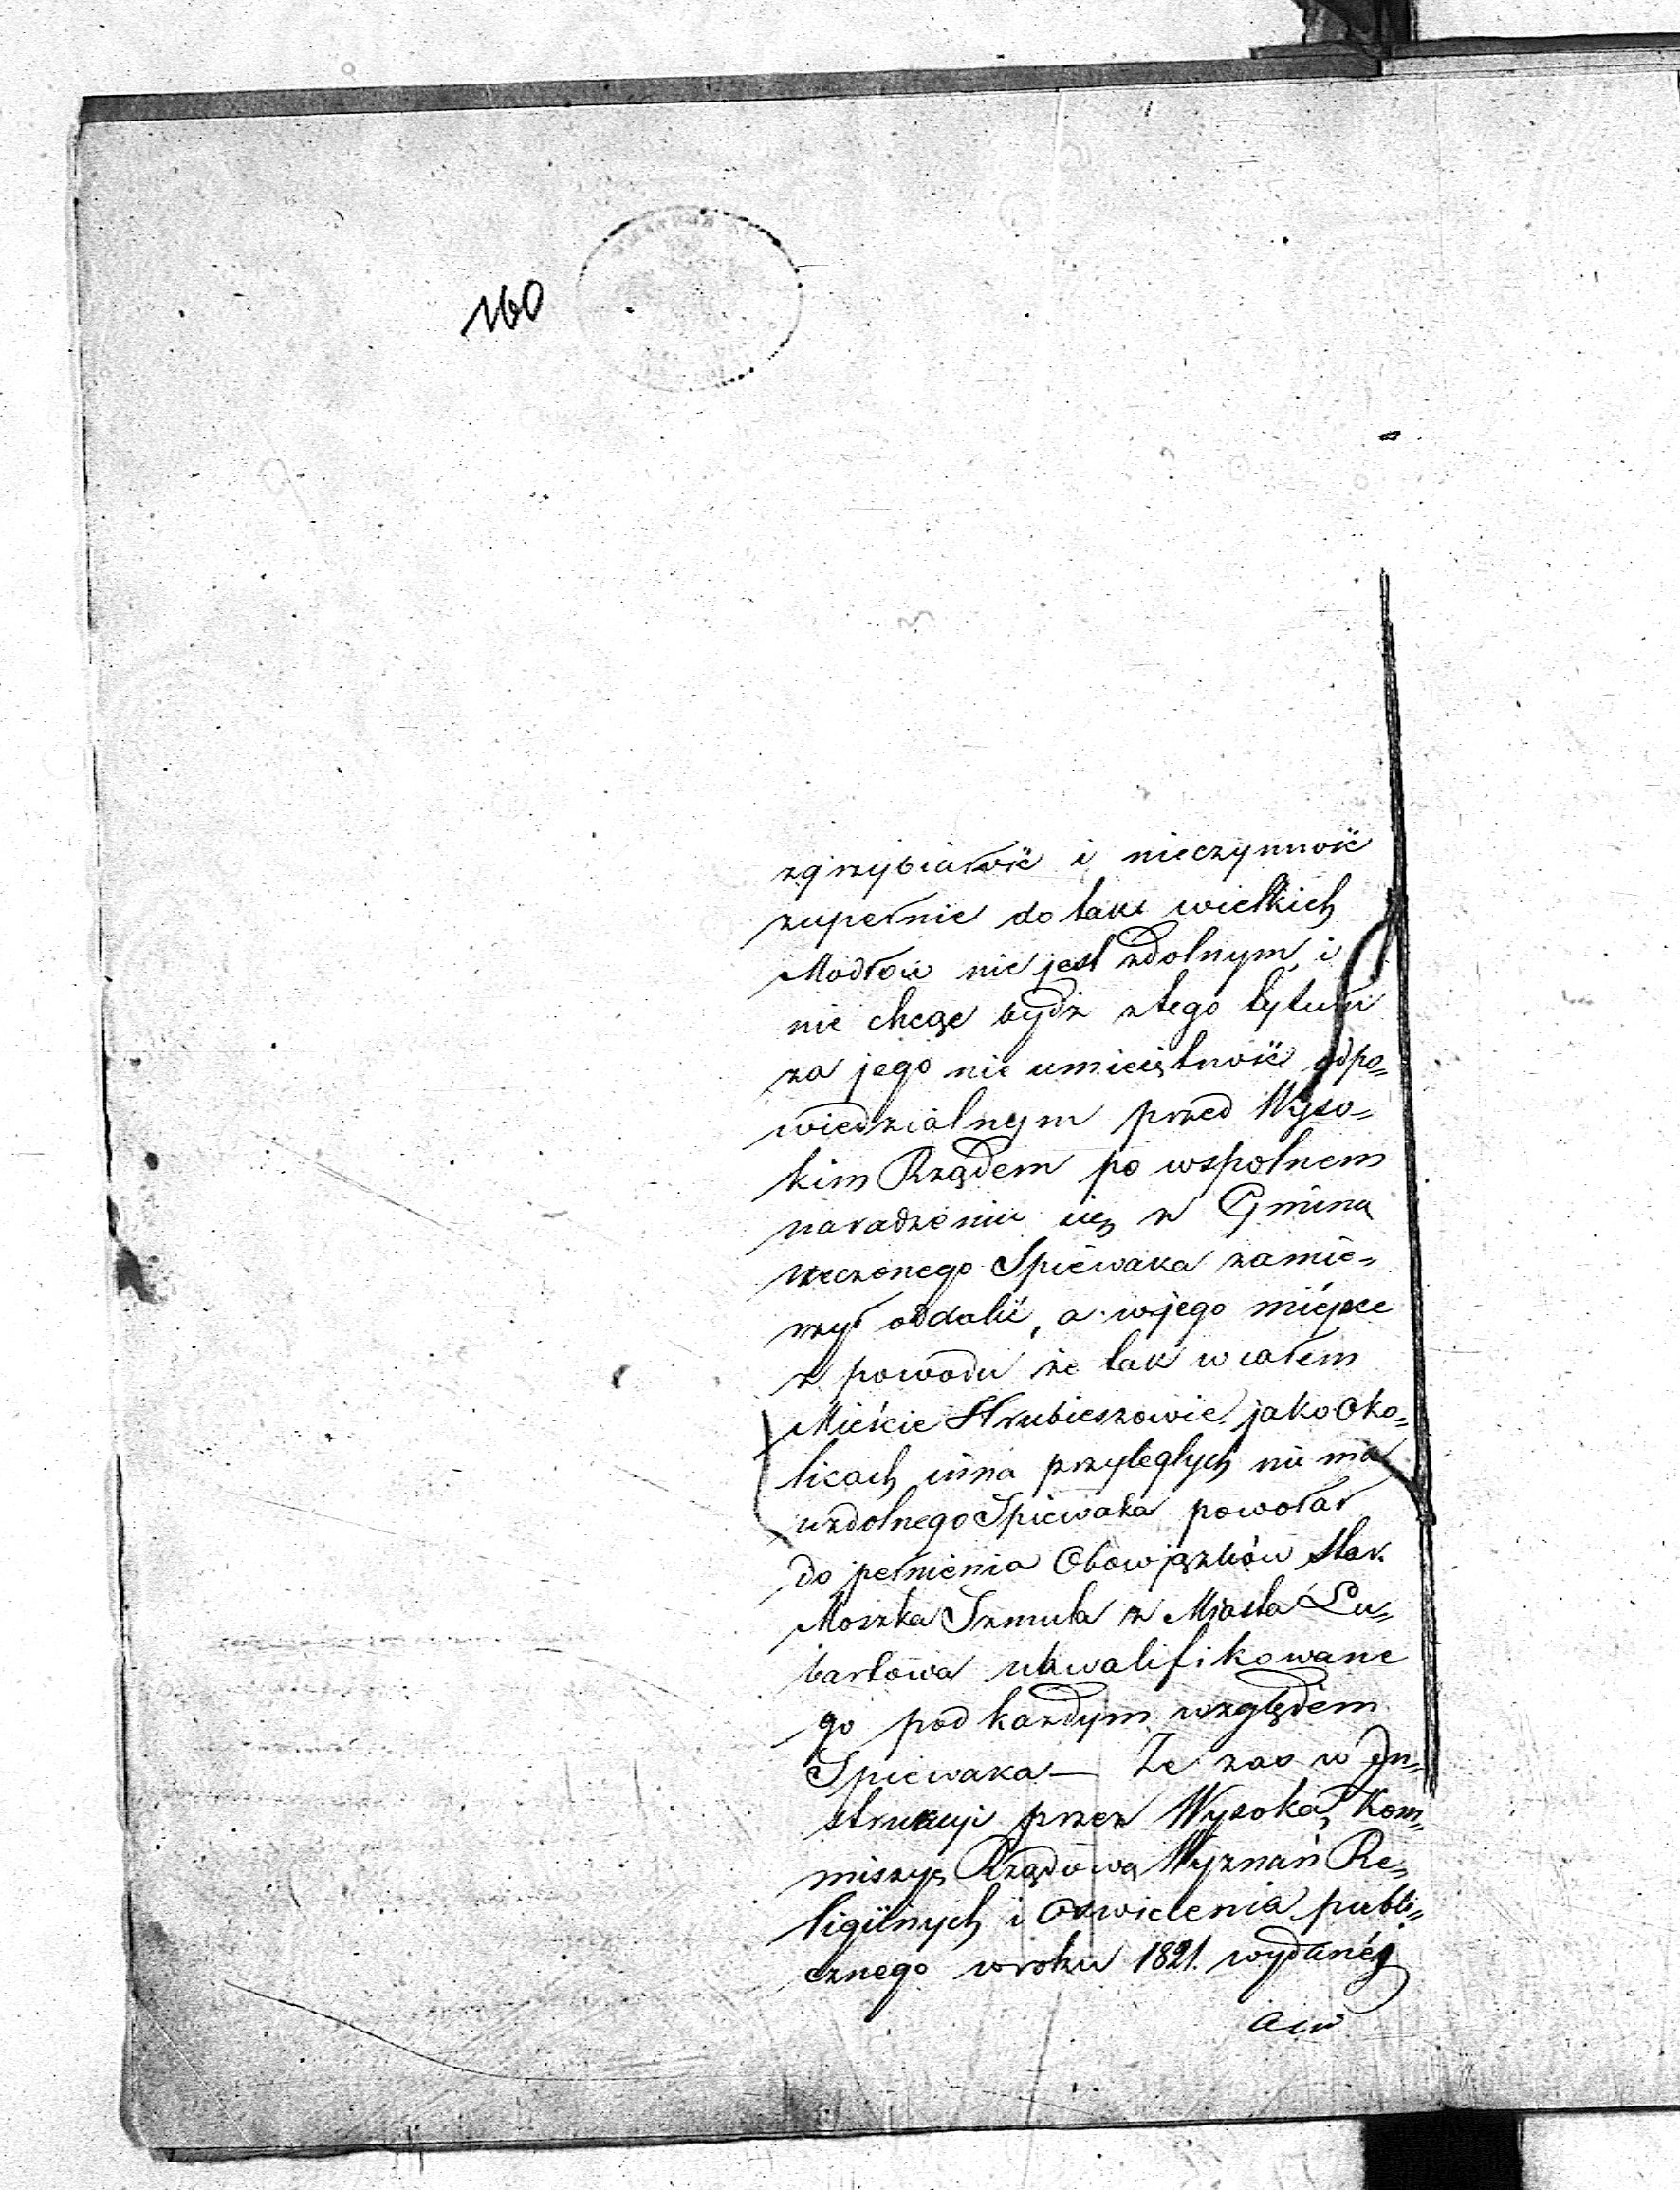 160
zgrzybiałość i nieczynność
zupełnie do tak wielkich
Modłów nie jest zdolnym, i
nie chcąc bydź ztego tytułu
za jego nie umieiętność odpo„
wiedzialnym przed Wyso„
kim Rządem po wspolnem
naradzeniu się z Gminą
rzeczonego Spiewaka zamie„
rzył oddalić, a w jego miéjsce
z powodu że tak w całem
Mieście Hrubieszowie jako oko„
licach przyległych nie ma
uzdolnego Spiewaka powołał
do pełnienia Obowiązków Star.
Moszka Szmula z Miasta Lu„
bartowa ukwalifikowane
go pod każdym względem
Spiewaka — Że zas w In„
strukcyi przez Wysoką Kom„
missyę Rządową Wyznań Re„
ligiinych i Oswiecenia publi„
cznego w roku 1821. wydanéj